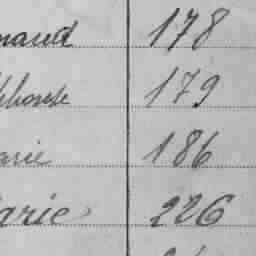 naud 178
phonse 179
arie 186
arie 226